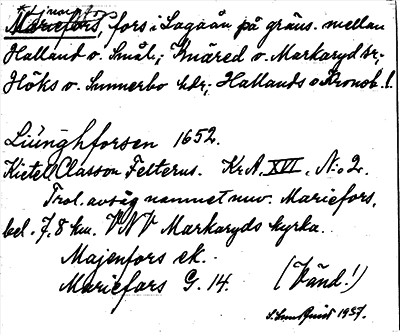 *Mariefors, fors i Lagaån på gräns. mellan
Halland o. Smål.; Knäred o. Markaryd sr;
Höks o. Sunnerbo hdr; Hallands o Kronob. l.
Liünghforsen 1652.
Kietell Classon Felterus. Kr.A. XVI. N:o 2.
Trol. avsåg namnet nuv. Mariefors,
bel. 7,8 km. VNV Markaryds kyrka.
Majenfors ek.
Mariefors G. 14. (Vänd!)
1937.